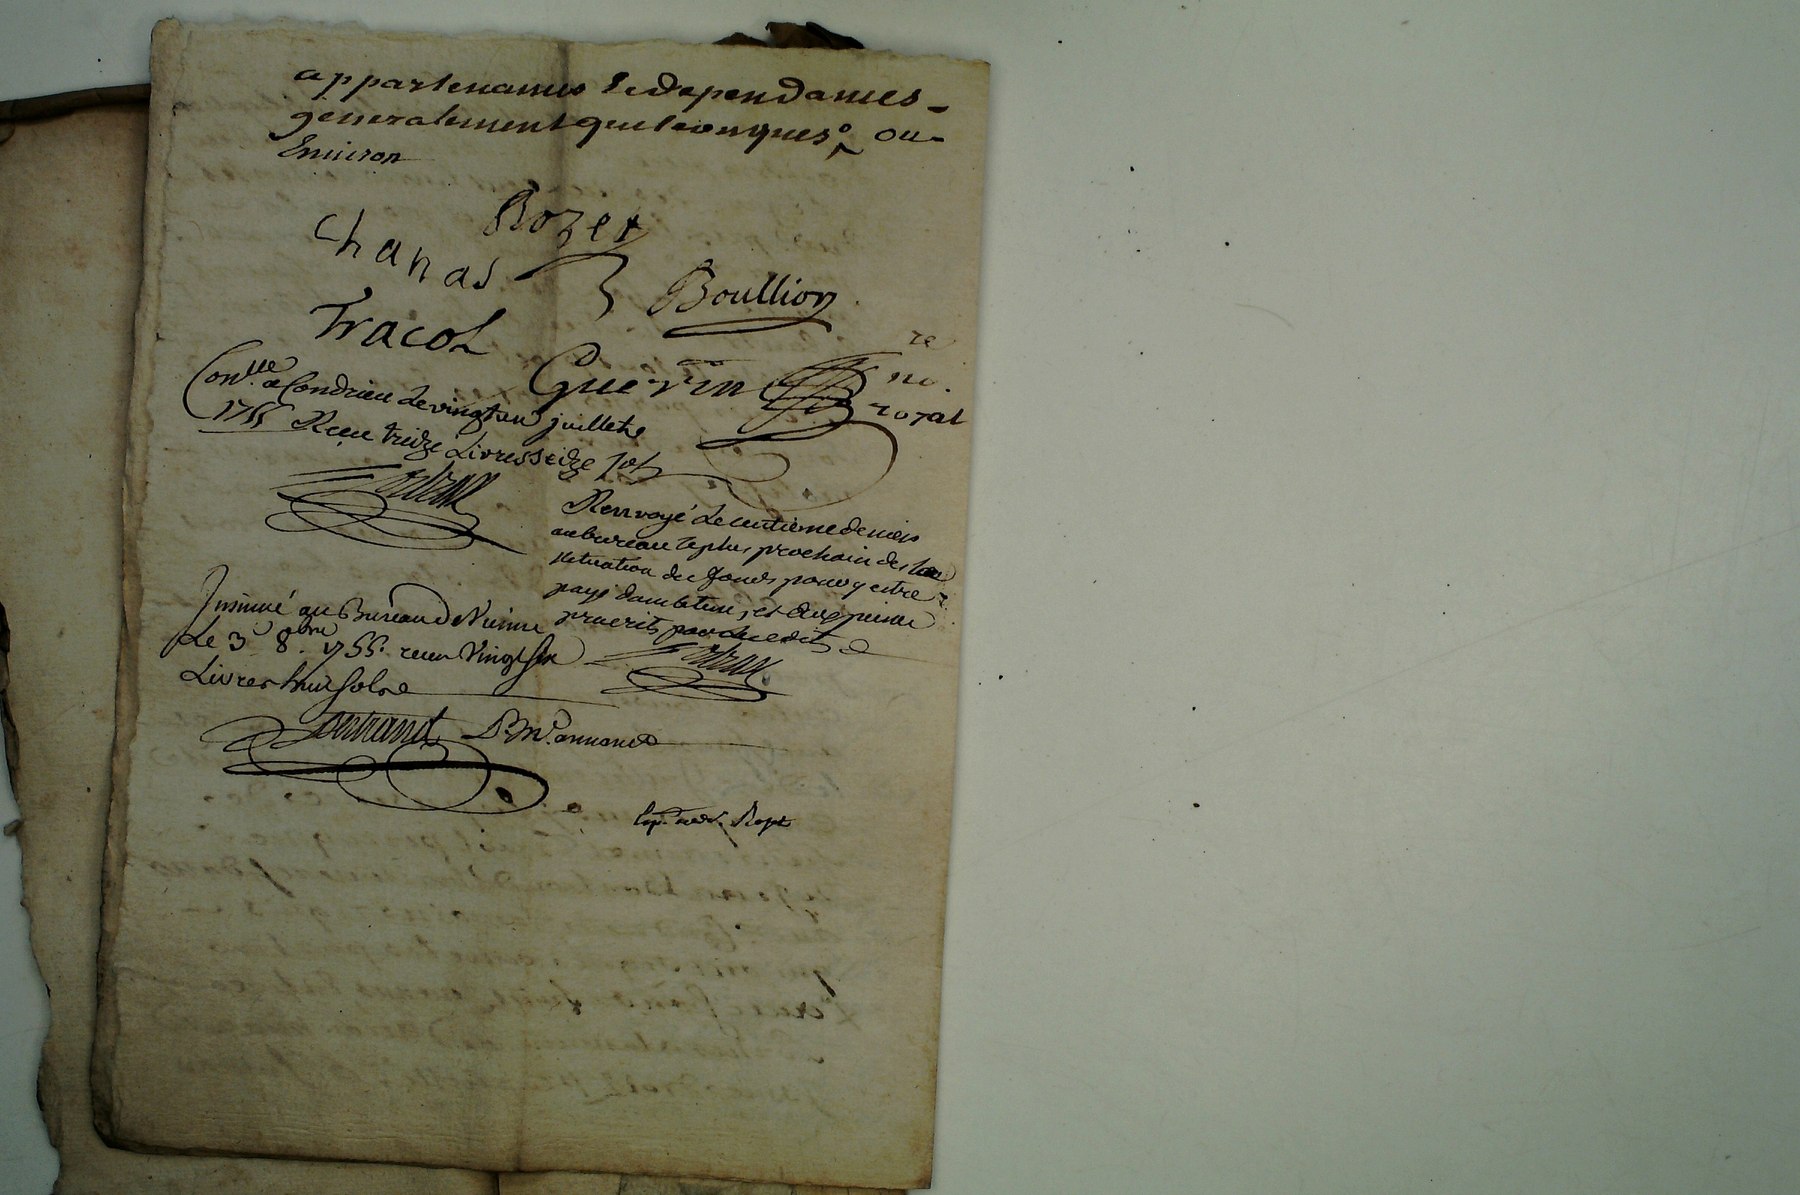 appartenances & dependances
generalement quelconques ou
Environ
Rozet
Chanas
Boullion
Tracol
Guerin no.re royal
Con.lle a Condrieu le vingt un juillet
1755 Receu treize Livres seize sols
Renvoyé le centieme denier
au bureau le plus prochain de la
situation des fonds pour y estre
payé dans le tems, et aux peines
prescrits par les edits
Insinué au Bureau de Vienne
Le 3 8.bre 1755. receu Vingt six
Livres huit sols